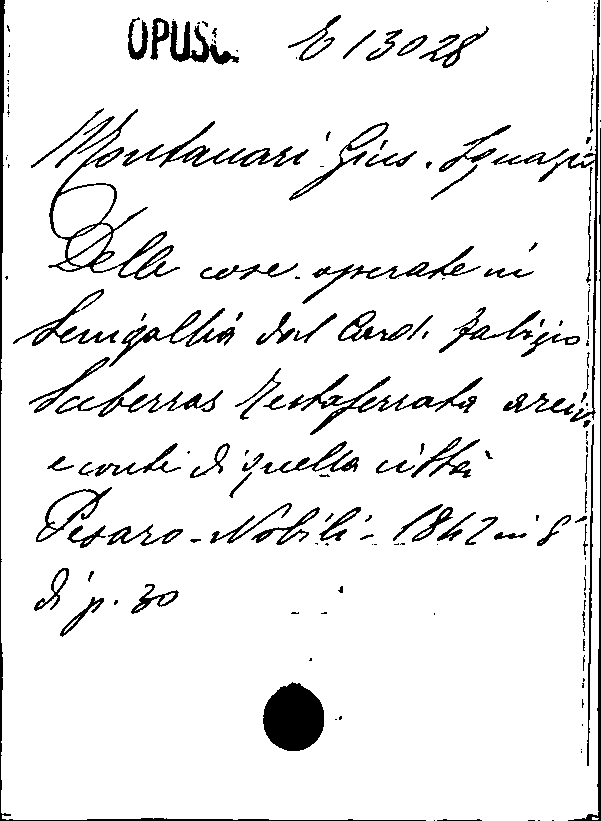 OPUSC. E 13028
Montanari Gius. Ignazio
Delle cose operate in
Senigallia dal Card. Fabrizio
Sceberras Testaferrata arciv.
e conte di quella città
Pesaro - Nobili - 1842 in 8°
di p. 30